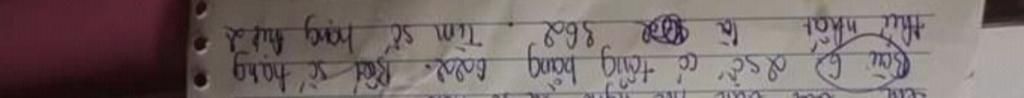 Bài 6 2 số có tổng bằng 6222. Biết số hạng
thứ nhất là 362. Tìm số hạng thứ 2